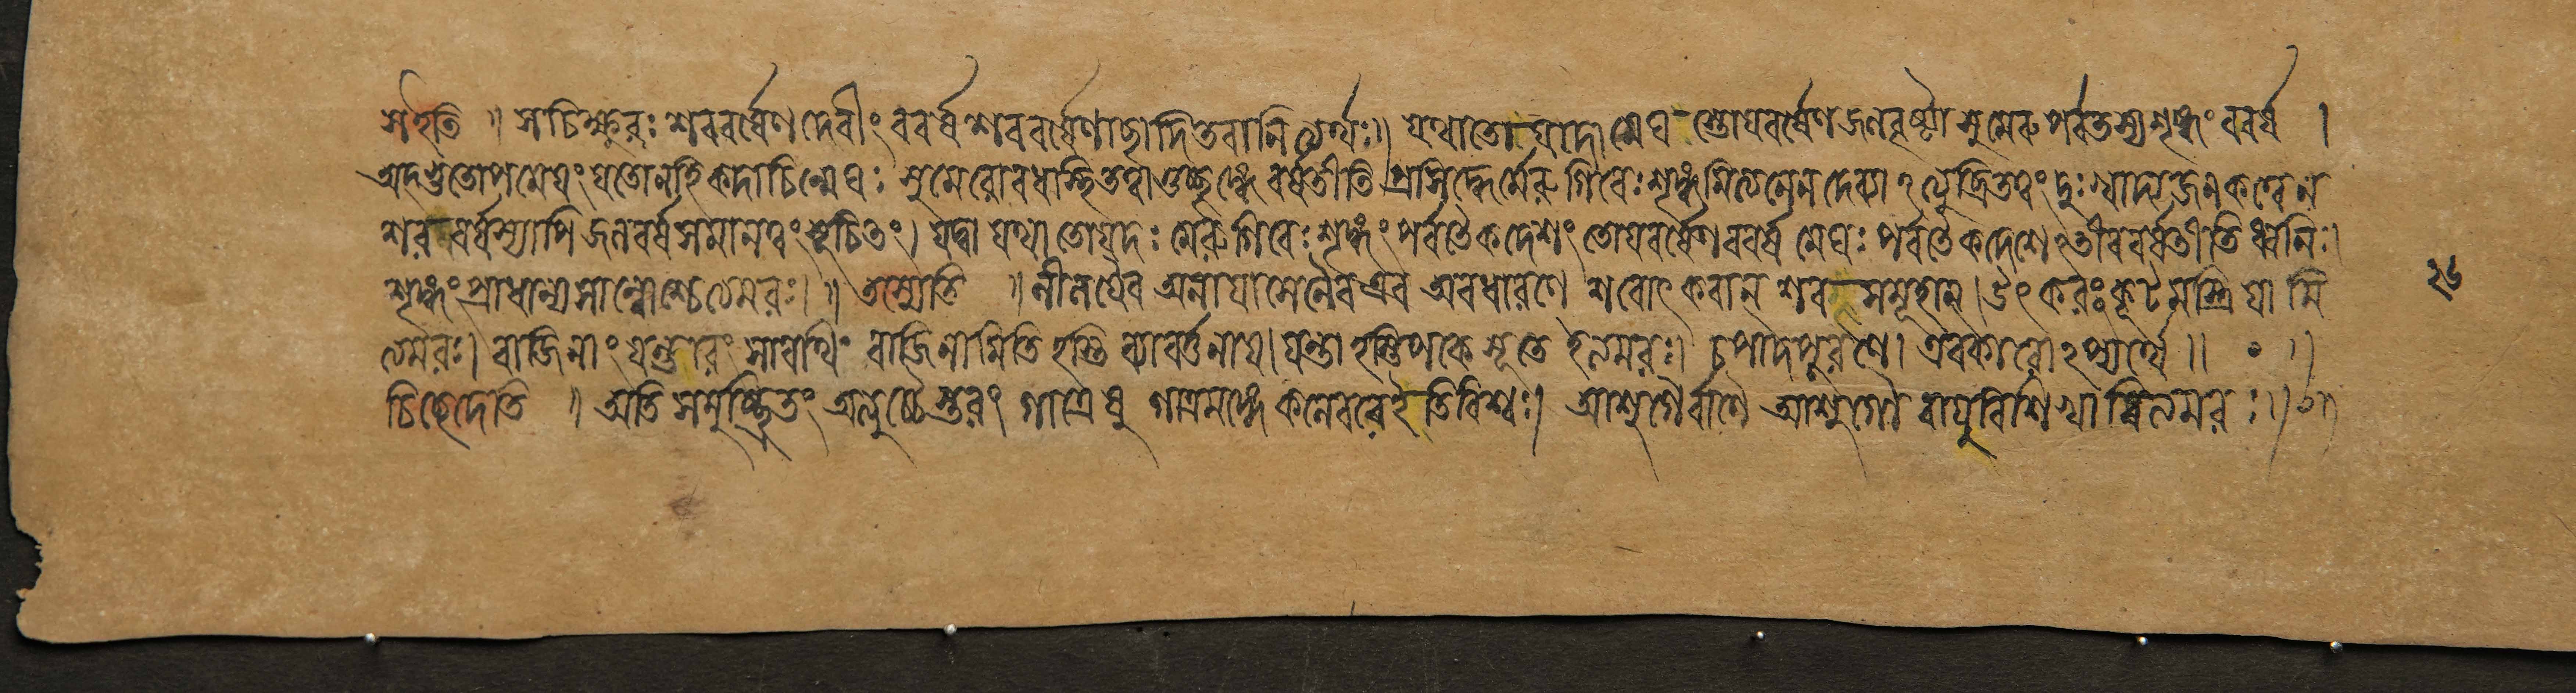 সইতি ॥ সচিক্ষুরঃ শরবর্ষেণ দেবীং ববর্ষ শরবর্ষেণাচ্ছাদিতবানিত্যর্থঃ॥ যথাতোযাদামেঘ স্তোযবর্ষেণ জলবৃষ্ট্যা সুমেরুপর্বতস্যশৃঙ্গং ববর্ষ ।
অদভুতোপমেযং যতোনহি কদাচিন্মেঘঃ সুমেরোরধঃস্থিতত্বাত্তচ্ছৃঙ্গে বর্ষতীতি প্রসিদ্ধের্মেরুগিরেঃ শৃঙ্গমিত্যনেন দেব্যাঽত্যুচ্ছ্রিতত্বং দুঃখাদ্যজনকত্বেন
শর বর্ষস্যাপি জলবর্ষসমানত্বং সূচিতং। যদ্বা যথা তোযদঃ মেরুগিরেঃ শৃঙ্গং পর্বতৈকদেশং তোযবর্ষেণ ববর্ষ মেঘঃ পর্বতৈকদেশেঽতীববর্ষতীতি ধ্বনিঃ।
শৃঙ্গং প্রাধান্যসান্বোশ্চেত্যমরঃ। ॥ তস্যেতি ॥ লীলযৈব অনাযাসেনৈব এব অবধারণে শরোৎকরান্ শর সমূহান্। উৎকরঃ কূটমস্ত্রিযামি
ত্যমরঃ। বাজিনাং যন্তারং সারথিং বাজিনামিতি হস্তি ব্যাবর্ত্তনায। যন্তা হস্তিপকে সূতে ইত্যমরঃ। চপাদপূরণে। এবকারোঽপ্যর্থে॥ • ॥
চিচ্ছেদেতি ॥ অতি সমুচ্ছ্রিতং অত্যুচ্চৈস্তরং গাত্রেষু গাত্রমঙ্গে কলেবরে ইতিবিশ্বঃ। আশুগৈর্বাণৈঃ আশুগৌ বাযুবিশিখাবিত্যমরঃ॥
২৬